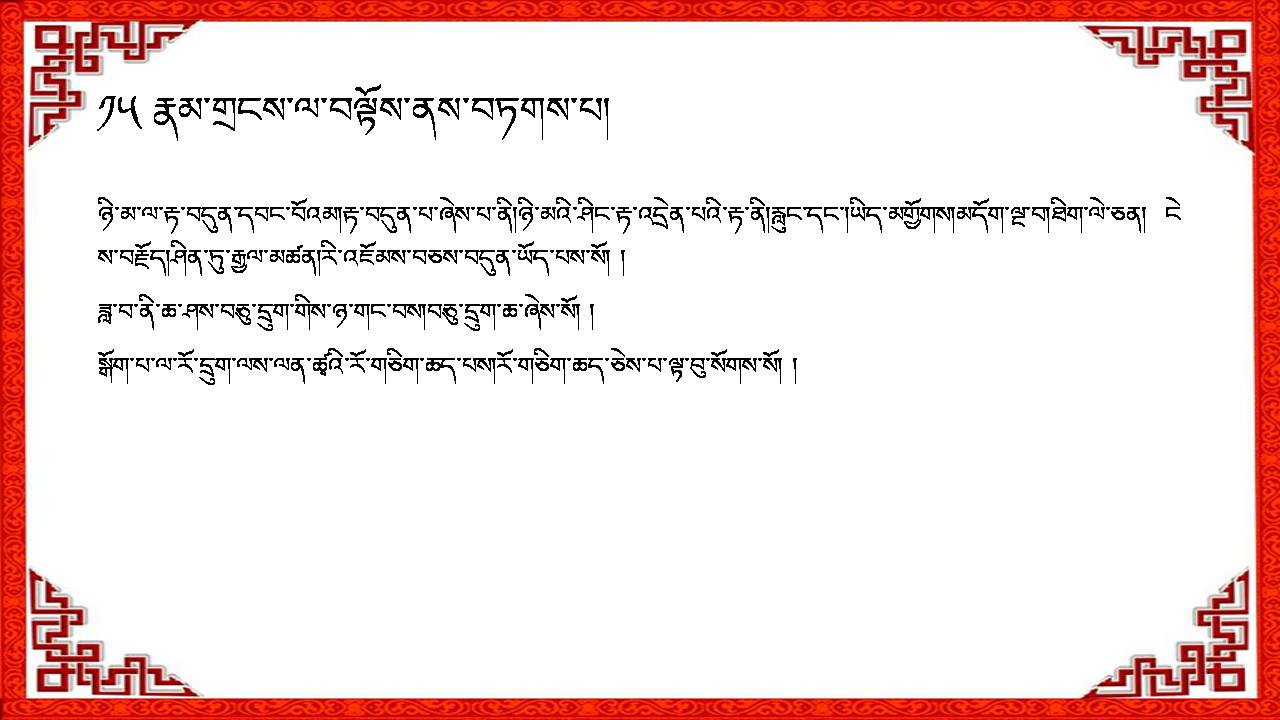 ༡༥ རྣམ་གྲངས་ལ་བལྟོས་ནས་བཏགས་པ།
ཉི་མ་ལ་རྟ་བདུན་དབང་པོའམ།རྟ་བདུན་པ་ཞེས་པ་ནི།ཉི་མའི་ཤིང་རྟ་འདྲེན་པའི་རྟ་ནི།རླུང་དང་།ཡིད་མགྱོགས།མདོག་ལྔ་བ།ཐིག་ལེ་ཅན། ངེ
ས་བརྗོད།ཤིན་ཏུ་རྒྱལ་མཚན།རི་འཇོམས་བཅས་བདུན་ཡོད་པས་སོ། །
ཟླ་བ་ནི་ཆ་ཤས་བཅུ་དྲུག་གིས་ཉ་གང་བས།བཅུ་དྲུག་ཆ་ཞེས་སོ། །
སྒོག་པ་ལ་རོ་དྲུག་ལས་ལན་ཚྭའི་རོ་གཅིག་ཆད་པས།རོ་གཅིག་ཆད་ཅེས་པ་ལྟ་བུ་སོགས་སོ། །